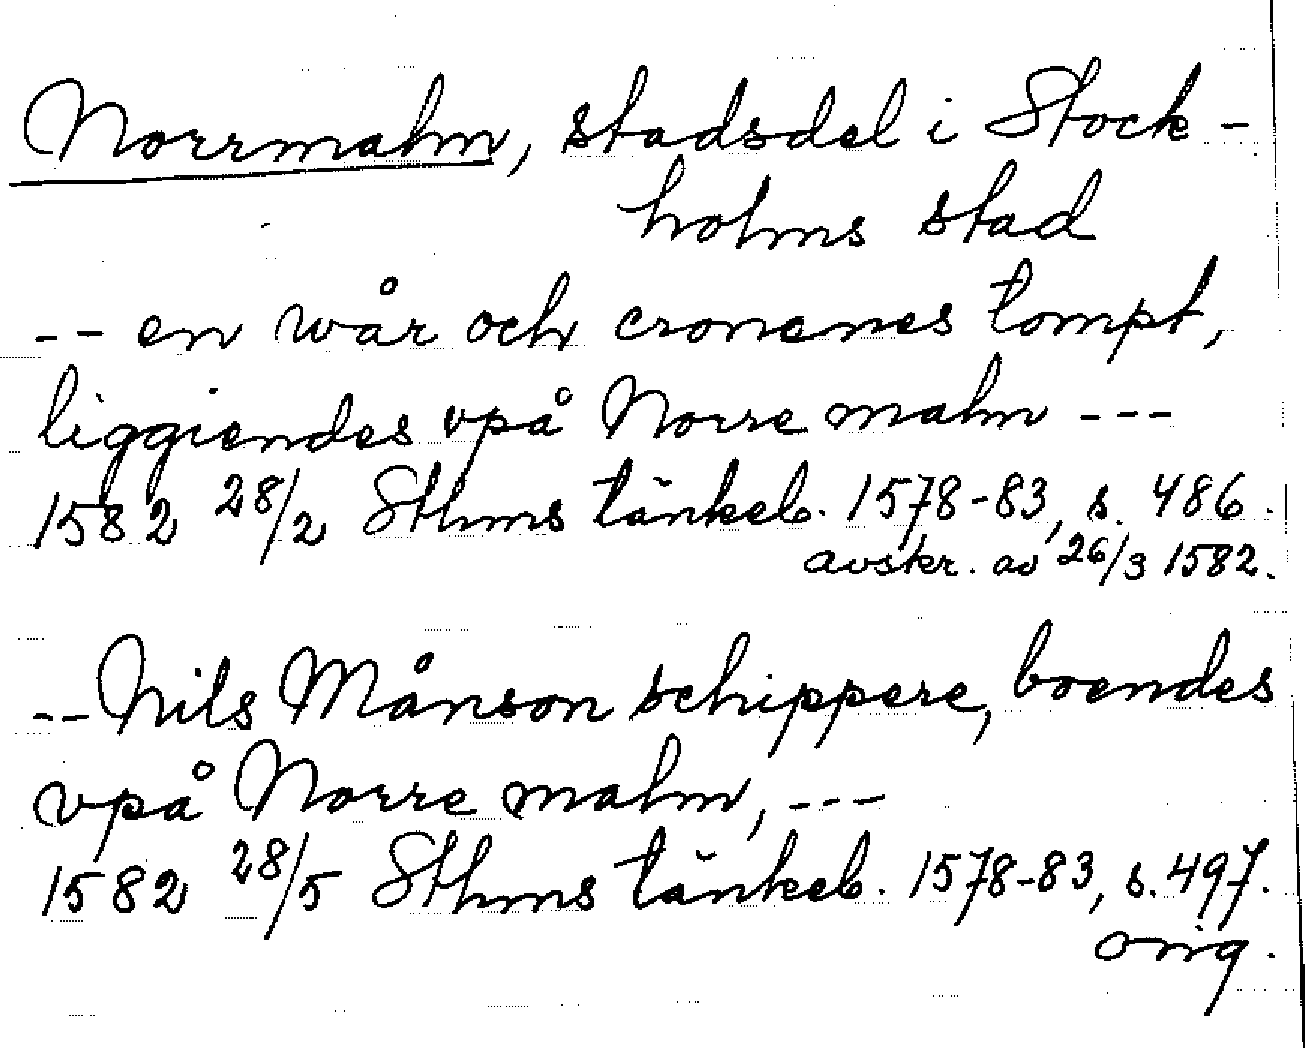 Norrmalm, stadsdel i Stock-
holms stad
-- en wår och cronenes tompt,
liggiendes vpå Norre malm ---
1582 28/2 Sthms tänkeb. 1578-83, s. 486.
avskr. av 26/3 1582.
-- Nils Månson schippere, boendes
vpå Norre malm, ---
1582 28/5 Sthms tänkeb. 1578-83, s. 497.
orig.